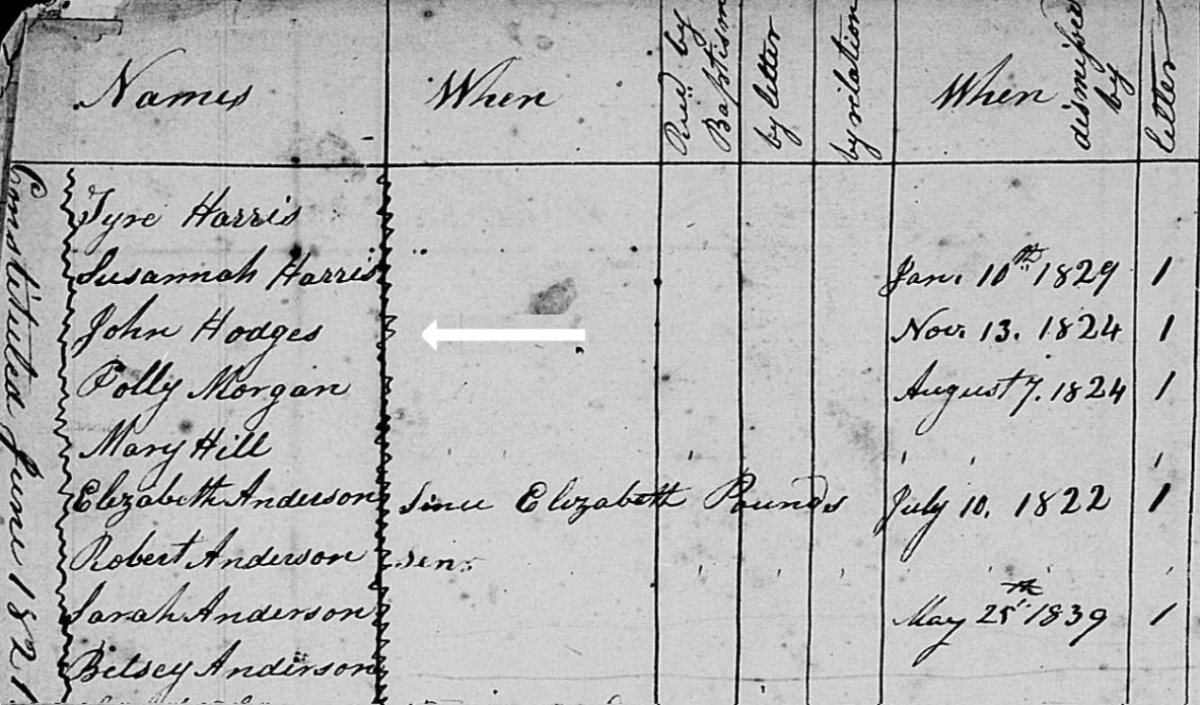 Names When Recd by Baptism by letter by relation When dismissed by letter
Constituted June 1821
Tyre Harris
Susannah Harris Jan. 10th 1829 1
John Hodges Nov. 13. 1824 1
Polly Morgan August 7. 1824 1
Mary Hill
Elizabeth Anderson since Elizabeth Pounds July 10. 1822 1
Robert Anderson senr
Sarah Anderson May 25th 1839 1
Betsey Anderson